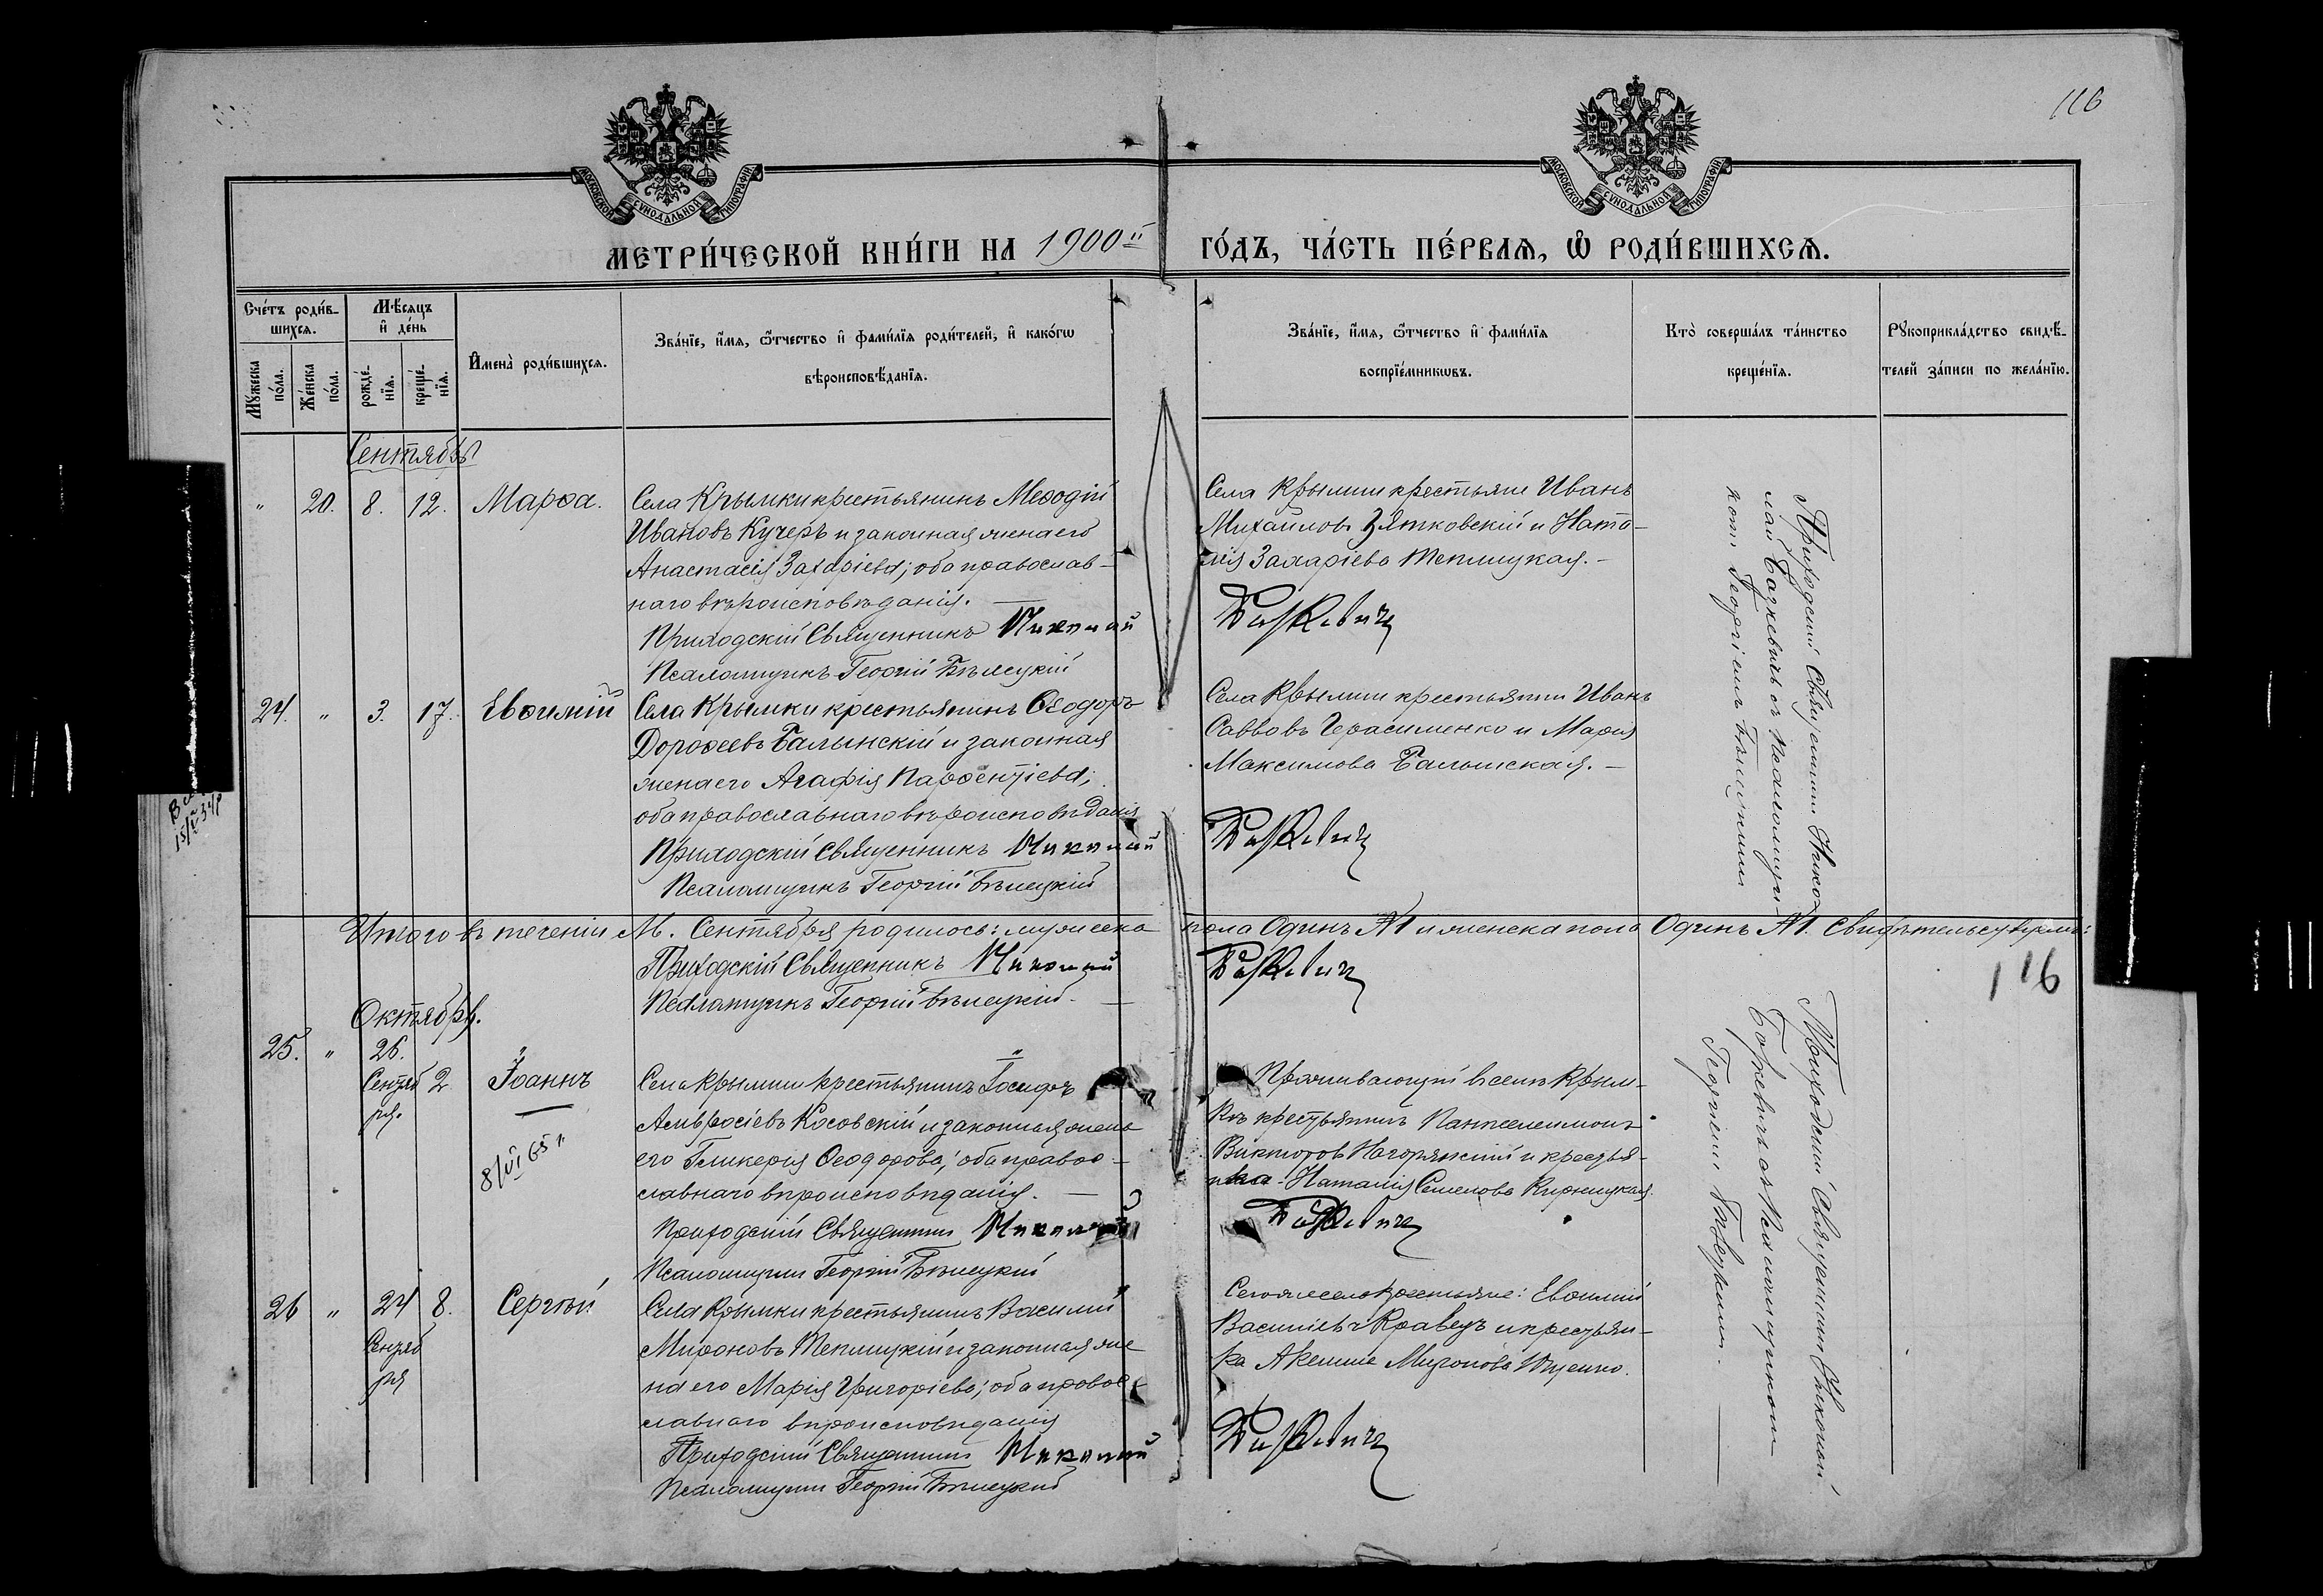 116
МОСКОВСКОЙ СѴНОДАЛЬНОЙ ТИПОГРАФІИ
МОСКОВСКОЙ СѴНОДАЛЬНОЙ ТИПОГРАФІИ
МЕТРИ́ЧЕСКОЙ КНИ́ГИ НА 1900й ГО́ДЪ, ЧА́СТЬ ПЕ́РВАѦ, Ѡ҆ РОДИ́ВШИХСѦ.
Сче́тъ роди́в-
шихсѧ.
Мꙋ́жеска по́ла.
Же́нска по́ла.
Мѣ́сѧцъ
и҆ де́нь
рожде́-
нїѧ.
креще́-
нїѧ.
И҆мена̀ роди́вшихсѧ.
Зва́нїе, и҆́мѧ, ѻ҆́тчество и҆ фами́лїѧ роди́телей, и҆ како́гѡ
вѣроисповѣ́данїѧ.
Зва́нїе, и҆́мѧ, ѻ҆́тчество и҆ фами́лїѧ
воспрїе́мникѡвъ.
Кто̀ соверша́лъ та́инство
креще́нїѧ.
Рꙋкоприкла́дство свидѣ́-
телей за́писи по жела́нїю.
Сентябрь
" 20. 8. 12. Марѳа.
Села Крымки крестьянинъ Меѳодій
Ивановъ Кучеръ и законная жена его
Анастасія Захаріева; оба православ-
наго вѣроисповѣданія. —
Приходскій Священникъ Николай
Псаломщикъ Георгій Бѣлецкій
Села Крымки крестьяне Иванъ
Михайловъ Зятковскій и Ната-
лія Захаріева Теплицкая. —
Бажевичъ
Приходскій Священникъ Нико-
лай Бажевичъ съ псаломщи-
комъ Георгіемъ Бѣлецкимъ
24. " 3. 17. Евѳимій
Села Крымки крестьянинъ Ѳеодоръ
Дороѳеевъ Балынскій и законная
жена его Агафія Парѳентіева;
оба православнаго вѣроисповѣданія
Приходскій Священникъ Николай
Псаломщикъ Георгій Бѣлецкій
Села Крымки крестьянинъ Иванъ
Саввовъ Герасименко и Марія
Максимова Балынская. —
Бажевичъ
Итого въ теченіи М. Сентября родилось: мужеска пола Одинъ №1 и женска пола Одинъ №1. Свидѣтельствуемъ:
Приходскій Священникъ Николай Бажевичъ
Псаломщикъ Георгій Бѣлецкій. —
116
Октябрь.
25. " 26.
Сентяб 2 Іоаннъ
ря.
8/VI 65 г.
Села Крымки крестьянинъ Іосифъ
Амвросіевъ Косовскій и законная жена
его Гликерія Ѳеодорова; оба правос-
лавнаго вѣроисповѣданія. —
Приходскій Священникъ Николай
Псаломщикъ Георгій Бѣлецкій
Проживающій въ селѣ Крым-
кѣ крестьянинъ Пантелеимонъ
Викторовъ Нагорянскій и крестья-
нка Наталія Семенова Кирницкая.
Бажевичъ
Приходскій Священникъ Николай
Бажевичъ съ Псаломщикомъ
Георгіемъ Бѣлецкимъ. —
26 " 24 8. Сергѣй
Сентяб
ря
Села Крымки крестьянинъ Василій
Мироновъ Теплицкій и законная же
на его Марія Григоріева; оба правос-
лавнаго вѣроисповѣданія
Приходскій Священникъ Николай
Псаломщикъ Георгій Бѣлецкій
Того же села крестьяне: Евѳимій
Василіевъ Кравецъ и крестьян-
ка Миронова
Бажевичъ